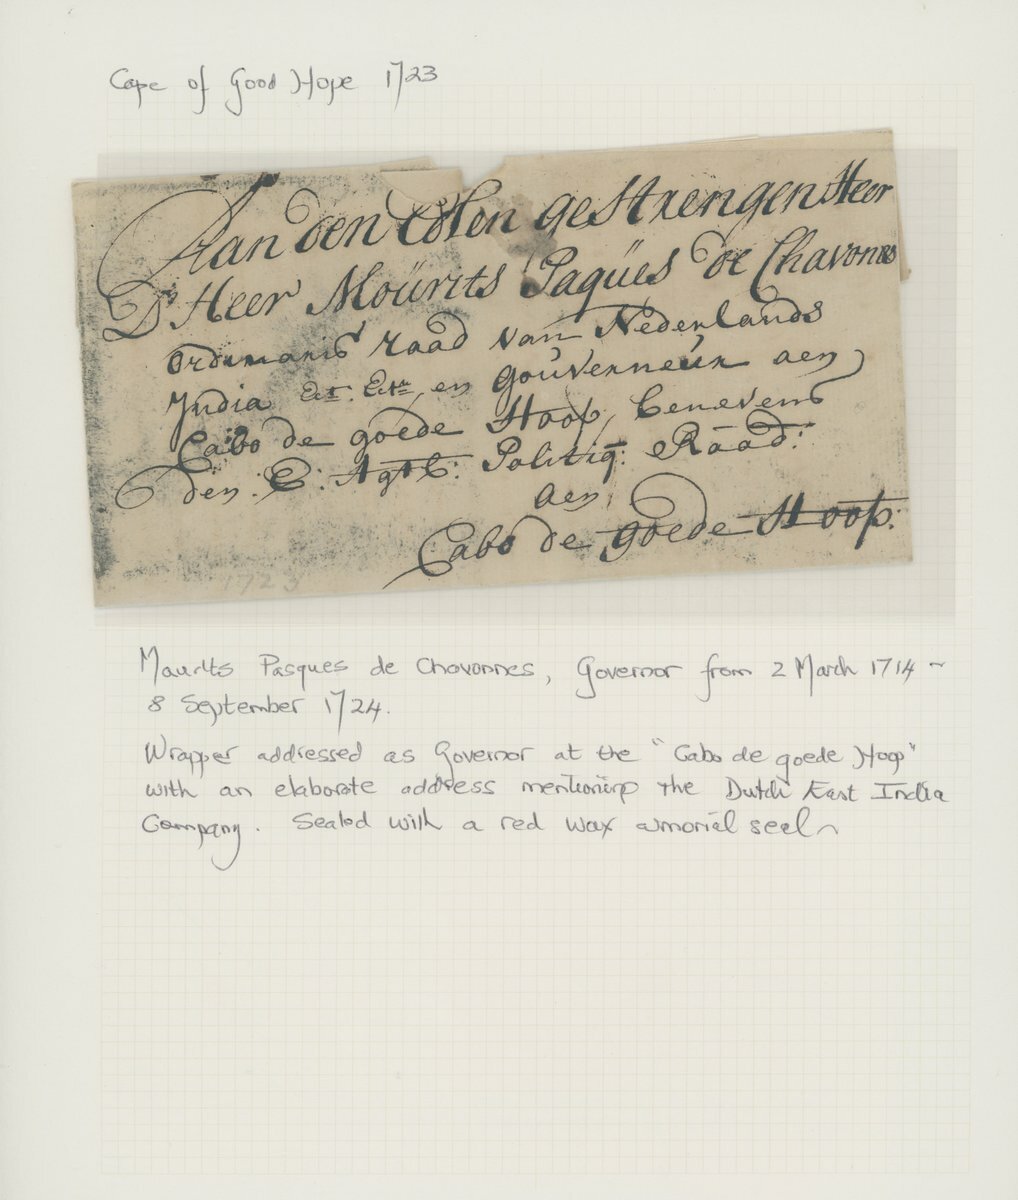 Cape of Good Hope 1723
Aan den Edlen gestrengen Heer
Dr Heer Moürits Paqües de Chavones
ordinaris raad van Nederlands
India Ect. Ectr. en gouverneür aen
Cabo de goede Hoop, benevens
den E: Agtb: Politiq: Raad:
aen
Cabo de goede Hoop:
1723
Maurits Pasques de Chavonnes, Governor from 2 March 1714 -
8 September 1724.
Wrapper addressed as Governor at the "Cabo de goede Hoop"
with an elaborate address mentioning the Dutch East India
Company. Sealed with a red wax armorial seal